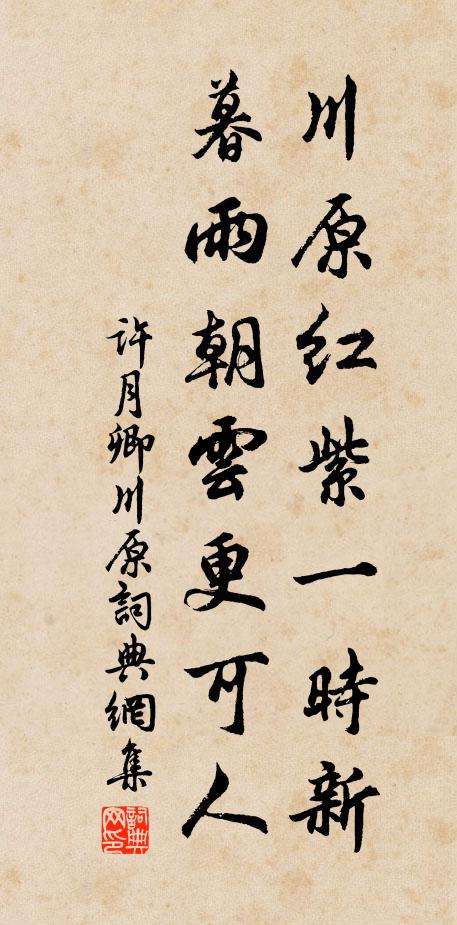 川原紅紫一時新
暮雨朝雲更可人
許月卿川原詞典網集
詞典網印